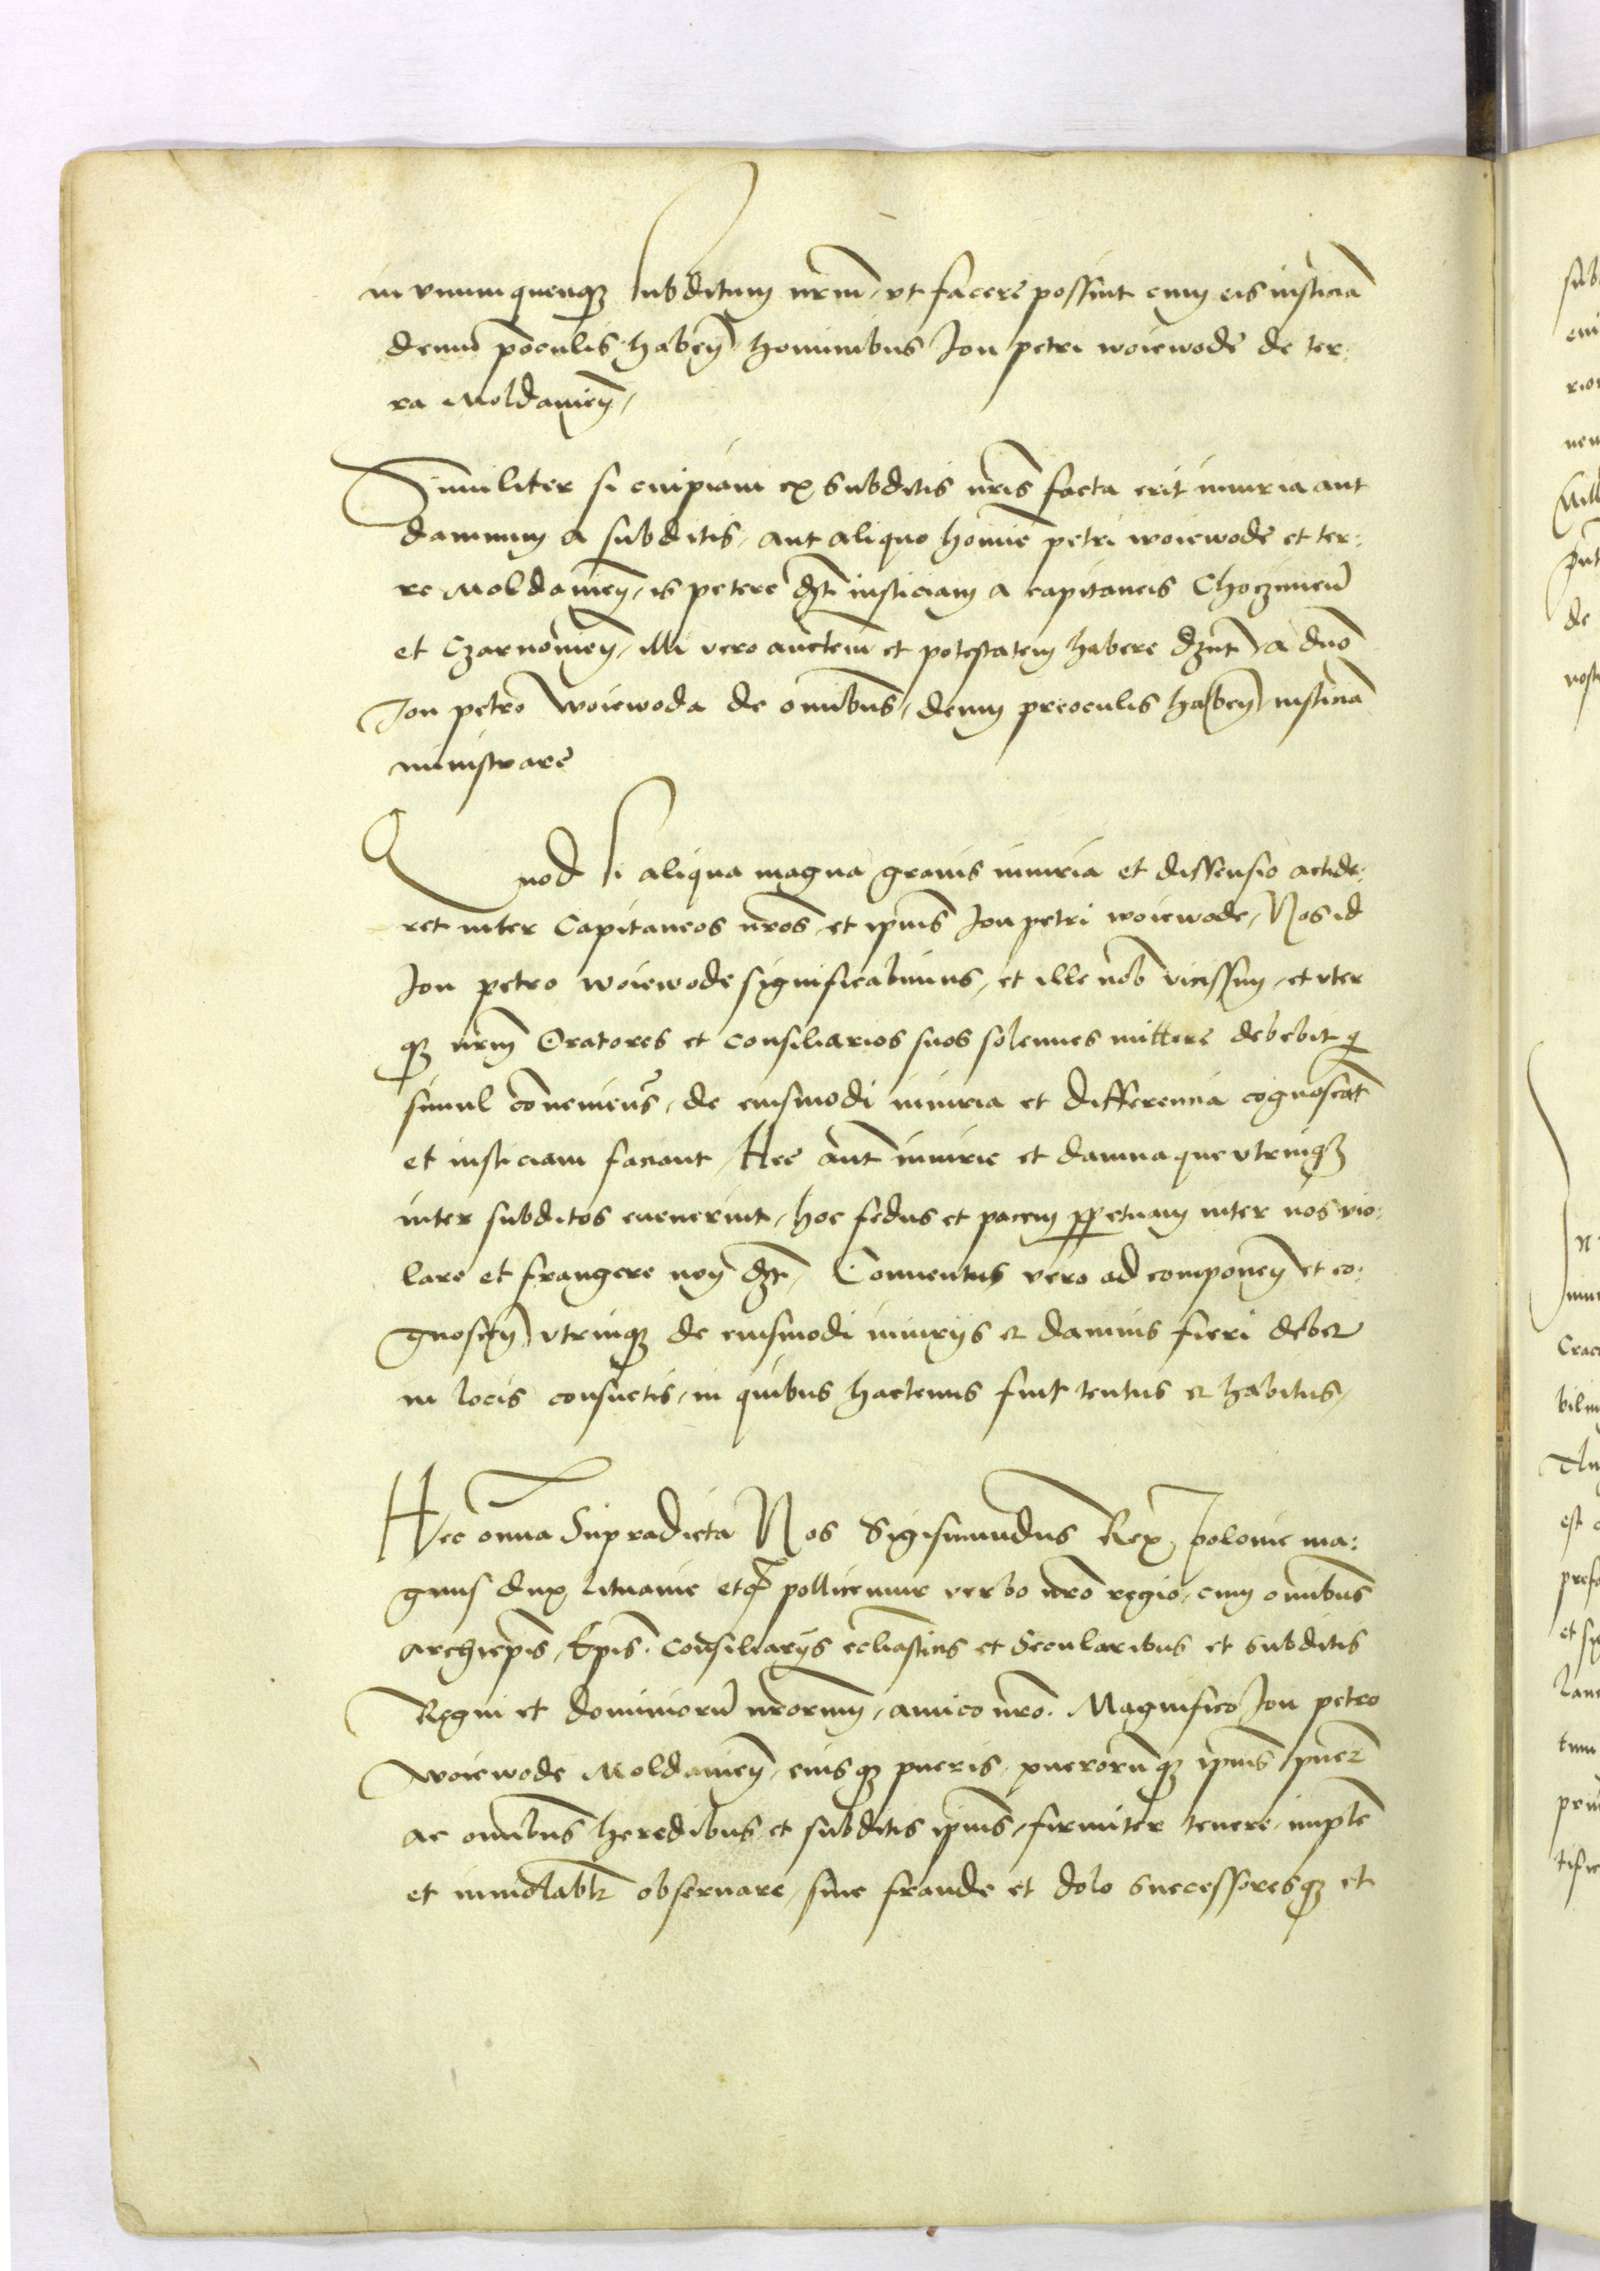 in vnumquenq; subditum nrm, vt facere possint cum eis iusticia
deum poculis haben hominibus Jon petri woiewode de ter:
ra Moldauien,
Similiter si cuipiam ex subditis nris facta erit iniuria aut
damnum a subditis, aut aliquo homine petri woiewode et ter:
re Moldauien, is petere dzt iusticiam a capitaneis Choczimen
et Czarnouien, illi vero auctem et potestatem habere dznt a dno
Jon petro woiewoda de omibus, deum preoculis haben iusticia
ministrare
Quod si aliqua magna grauis iniuria et dissensio accide:
ret inter Capitaneos nros et ipius Jon petri woiewode, Nos id
Jon petro woiewode significabimus, et ille nob vicissim, et vter
q; nrm Oratores et consiliarios suos solennes mittere debebit q
simul conueniens, de eiusmodi iniuria et differencia cognoscat
et iusticiam faciant, Hec aut iniurie et damna que vtrinq;
inter subditos euenerint, hoc fedus et pacem ppetuam inter nos vio:
lare et frangere non dzt, Conuentus vero ad componen et co:
gnoscen vtrinq; de eiusmodi iniurijs et damnis fieri debet
in locis consuetis, in quibus hactenus fuit tentus et habitus,
Hec omia Supradicta Nos Sigismundus Rex polonie ma:
gnus dux lituanie etc pollicemur verbo nro regio, cum omibus
archiepis, Epis. Consiliarijs eccliasticis et Secularibus et subditis
Regni et dominioru nrorum, amico nro. Magnifico Jon petro
woiewode Moldauien, eiusq; pueris, puerorumq; ipius puer
ac omibus heredibus et subditis ipius, firmiter tenere, imple
et inuiolabtr obseruare, sine fraude et dolo successoresq; et